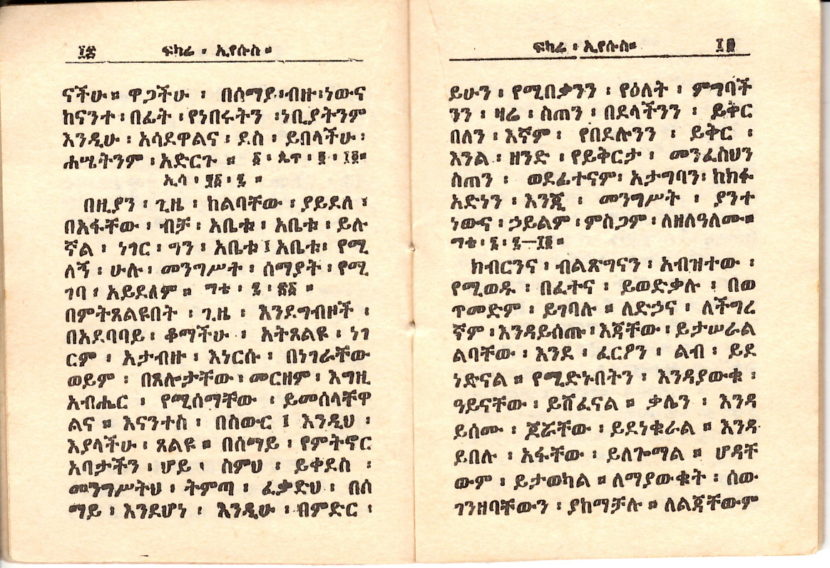 ፲፰ ፍካሬ ፡ ኢየሱስ ።
ናችሁ ። ዋጋችሁ ፡ በሰማይ ፡ ብዙ ፡ ነውና
ከናንተ ፡ በፊት ፡ የነበሩትን ፡ ነቢያትንም
እንዲሁ ፡ አሳደዋልና ፡ ደስ ፡ ይበላችሁ ፡
ሐሤትንም ፡ አድርጉ ።
በዚያን ፡ ጊዜ ፡ ከልባቸው ፡ ያይደለ ፤
በአፋቸው ፡ ብቻ ፡ አቤቱ ፡ አቤቱ ፡ ይሉ
ኛል ፡ ነገር ፡ ግን ፡ አቤቱ ፤ አቤቱ ፡ የሚ
ለኝ ፡ ሁሉ ፡ መንግሥተ ፡ ሰማያት ፡ የሚ
ገባ ፡ አይደለም ። ማቴ ፡ ፯ ፡ ፳፩ ።
በምትጸልዩበት ፡ ጊዜ ፡ እንደግብዞች ፡
በአደባባይ ፡ ቆማችሁ ፡ አትጸልዩ ፡ ነገ
ርም ፡ አታብዙ ፡ እነርሱ ፡ በነገራቸው
ወይም ፡ በጸሎታቸው ፡ መርዘም ፡ እግዚ
አብሔር ፡ የሚሰማቸው ፡ ይመስላቸዋ
ልና ። እናንተስ ፡ በስውር ፤ እንዲህ ፡
እያላችሁ ፡ ጸልዩ ። በሰማይ ፡ የምትኖር
አባታችን ፡ ሆይ ፡ ስምህ ፡ ይቀደስ ፡
መንግሥትህ ፡ ትምጣ ፡ ፈቃድህ ፡ በሰ
ማይ ፡ እንደሆነ ፡ እንዲሁ ፡ በምድር ፡
ፍካሬ ፡ ኢየሱስ ። ፲፱
ይሁን ፡ የሚበቃንን ፡ የዕለት ፡ ምግባች
ንን ፡ ዛሬ ፡ ስጠን ፡ በደላችንን ፡ ይቅር
በለን ፡ እኛም ፡ የበደሉንን ፡ ይቅር ፡
እንል ፡ ዘንድ ፡ የይቅርታ ፡ መንፈስህን
ስጠን ፡ ወደፊተናም ፡ አታግባን ፡ ከክፉ
አድነን ፡ እንጂ ፡ መንግሥት ፡ ያንተ
ነውና ፡ ኃይልም ፡ ምስጋም ፡ ለዘለዓለሙ ።
ማቴ ፡ ፮ ፡ ፯—፲፬ ።
ክብርንና ፡ ብልጽግናን ፡ አብዝተው ፡
የሚወዱ ፡ በፈተና ፡ ይወድቃሉ ፡ በወ
ጥመድም ፡ ይገባሉ ። ለድኃና ፡ ለችግረ
ኛም ፡ እንዳይሰጡ ፡ እጃቸው ፡ ይታሠራል
ልባቸው ፡ እንደ ፡ ፈርዖን ፡ ልብ ፡ ይደ
ነድናል ። የሚድኑበትን ፡ እንዳያውቁ ፡
ዓይናቸው ፡ ይሸፈናል ። ቃሌን ፡ እንዳ
ይሰሙ ፡ ጆሯቸው ፡ ይደነቁራል ። እንዳ
ይበሉ ፡ አፋቸው ፡ ይለጐማል ። ሆዳቸ
ውም ፡ ይታወካል ። ለማያውቁት ፡ ሰው
ገንዘባቸውን ፡ ያከማቻሉ ። ለልጃቸውም